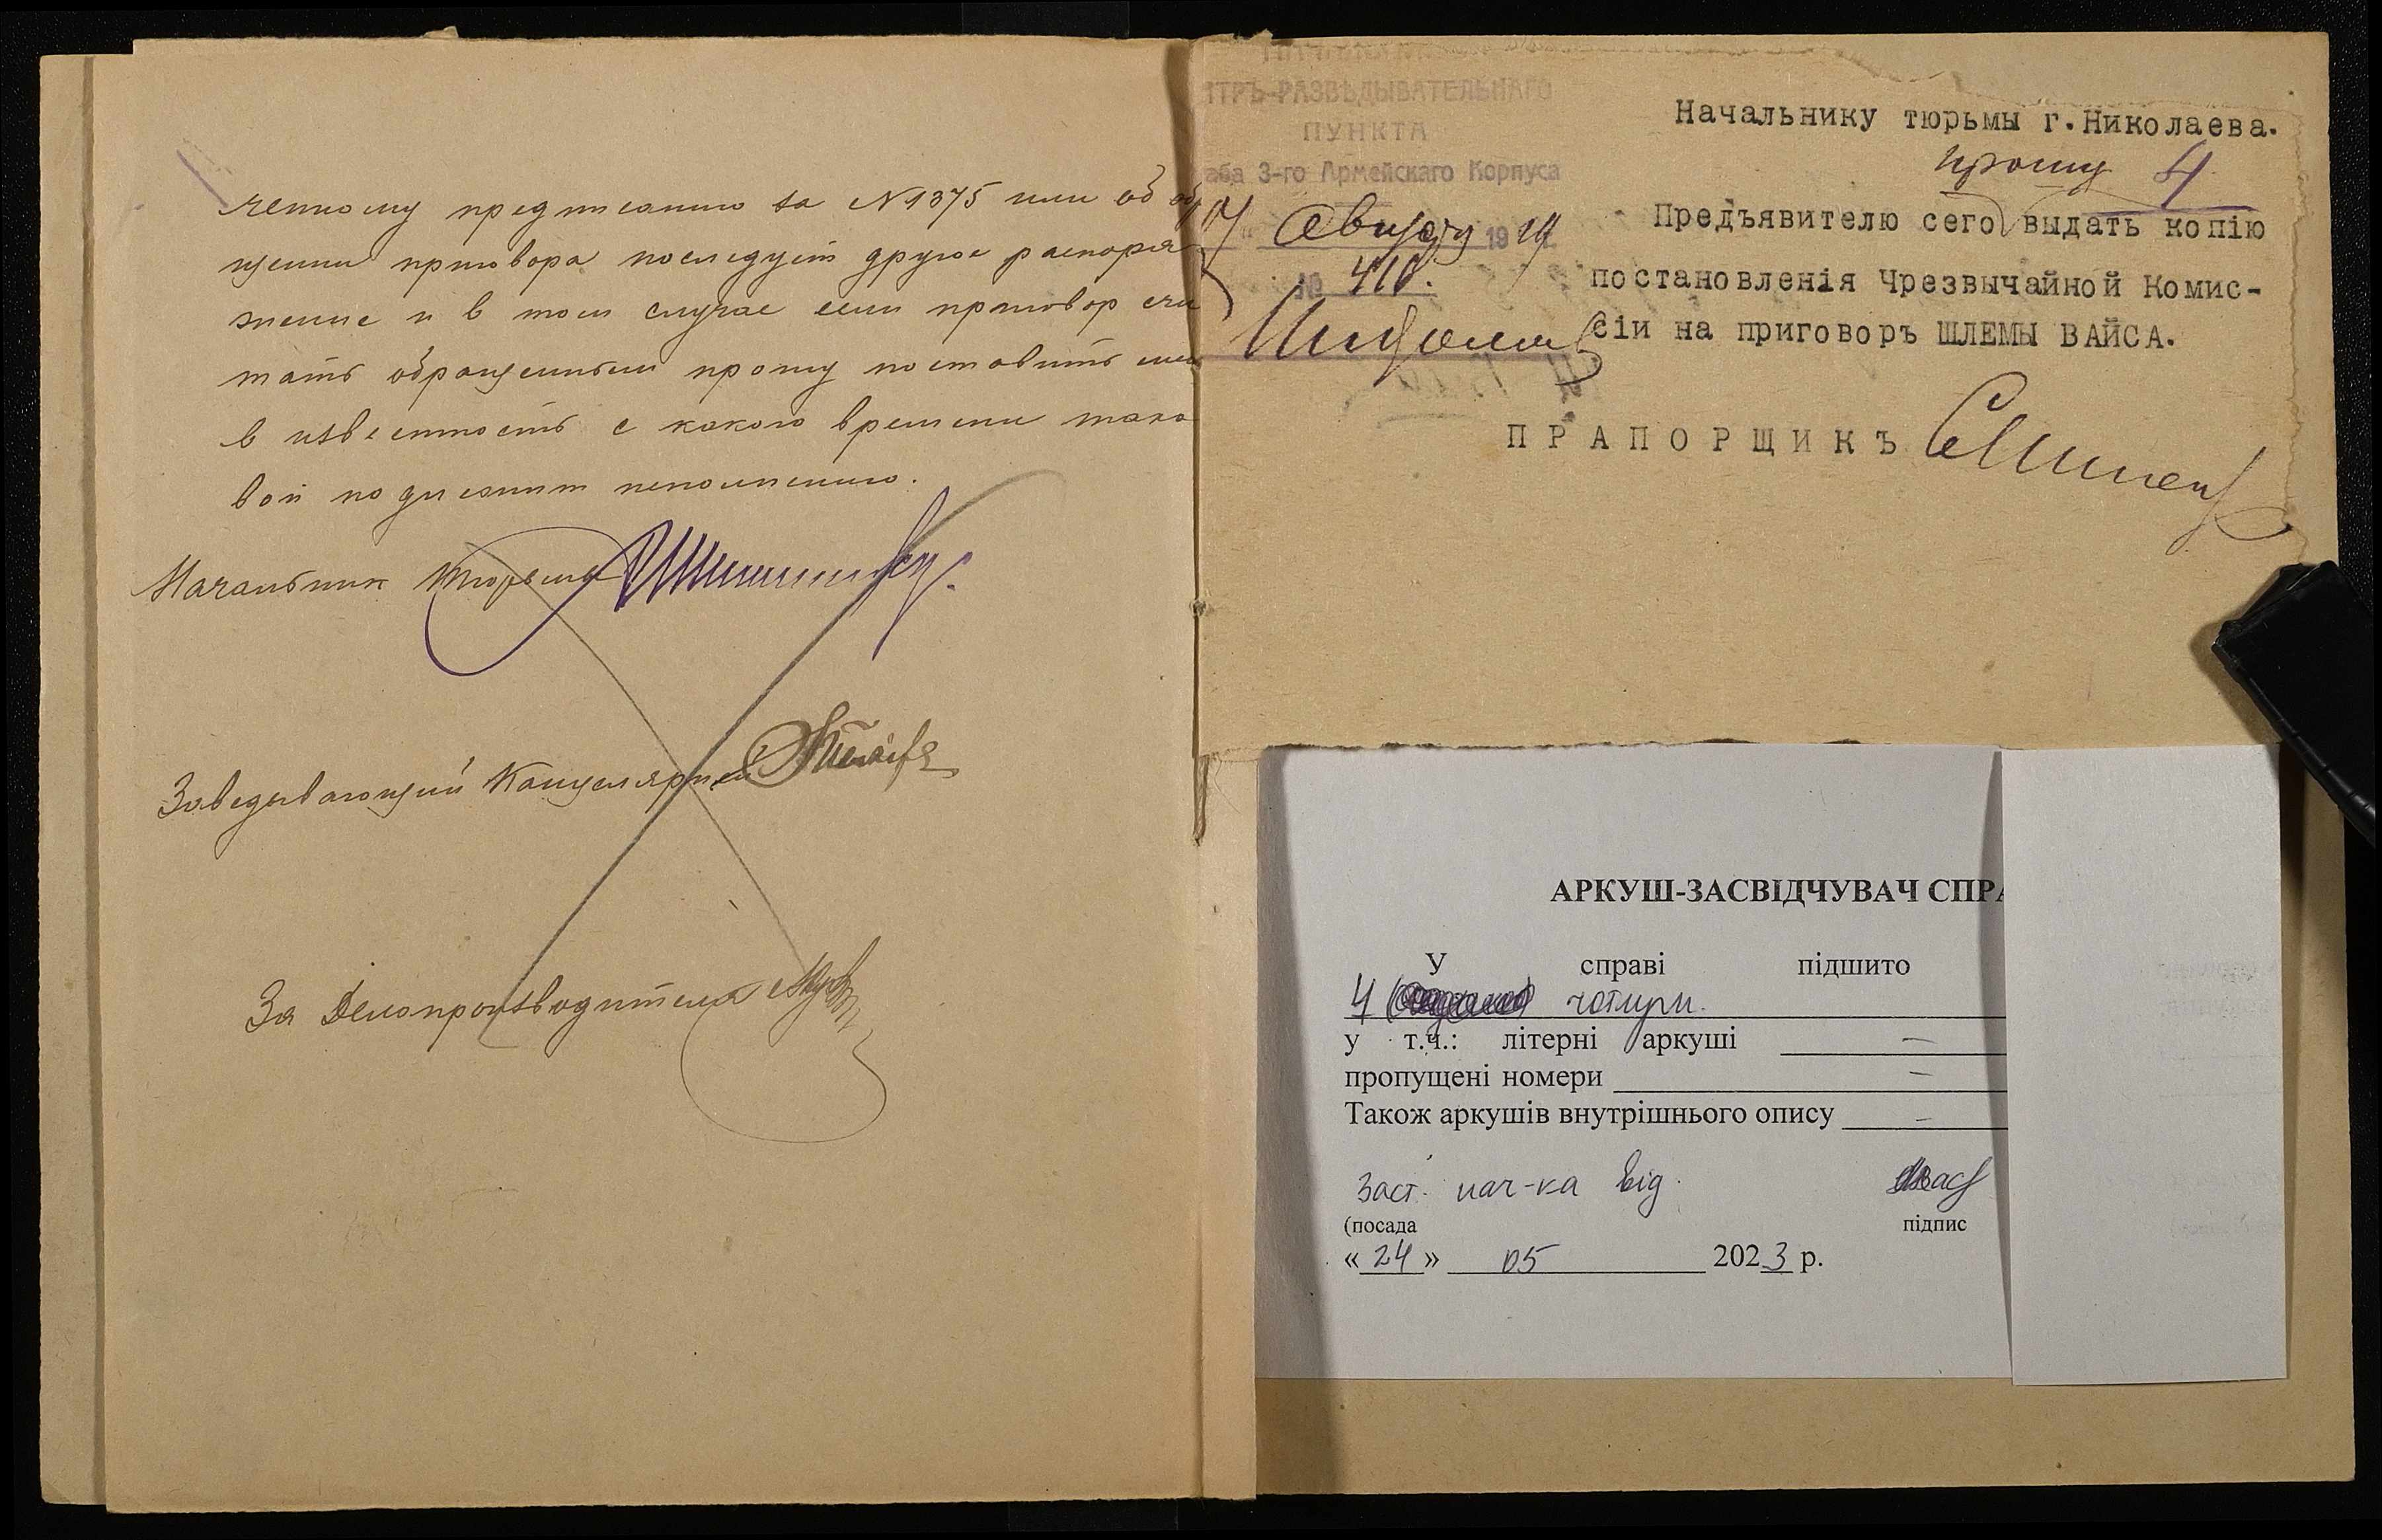 ченному предписанию за N1375 или об об
щении приговора последует другое распоря
жение и в том случае если приговор счи
тать обращенным прошу поставить меня
в известность с какого времени тако
вой подлежит исполнению.
Начальник тюрьмы
Заведывающий Канцелярией
За Делопроизводителя
НТРЪ-РАЗВѢДЫВАТЕЛЬНАГО
ПУНКТА
аба 3-го Армейскаго Корпуса
17 " Августа 1919
№ 410.
Начальнику тюрьмы г.Николаева.
прошу 4
Предъявителю сего выдать копію
постановленія Чрезвычайной Комис-
сіи на приговоръ ШЛЕМЫ ВАЙСА.
ПРАПОРЩИКЪ
АРКУШ-ЗАСВІДЧУВАЧ СПРА
У справі підшито
4 ( чотири.
у т.ч.: літерні аркуші —
пропущені номери —
Також аркушів внутрішнього опису —
Заст. нач-ка від.
(посада підпис
« 24 » 05 2023 р.